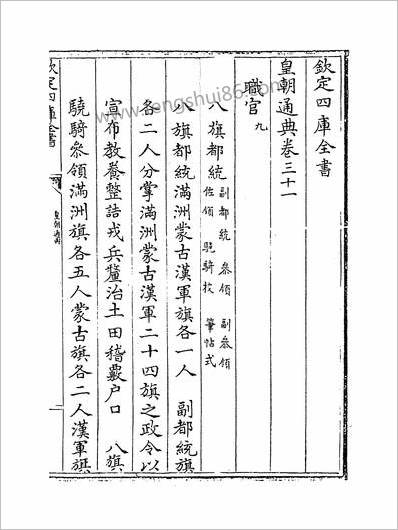 欽定四庫全書
皇朝通典卷三十一
職官九
八旗都統 副都統 參領 副參領
佐領 驍騎校 筆帖式
八旗都統滿洲蒙古漢軍旗各一人 副都統旗
各二人分掌滿洲蒙古漢軍二十四旗之政令以
宣布教養整詰戎兵釐治土田稽覈户口 八旗
驍騎參領滿洲旗各五人蒙古旗各二人漢軍旗
欽定四庫全書
www.fengshui86.com